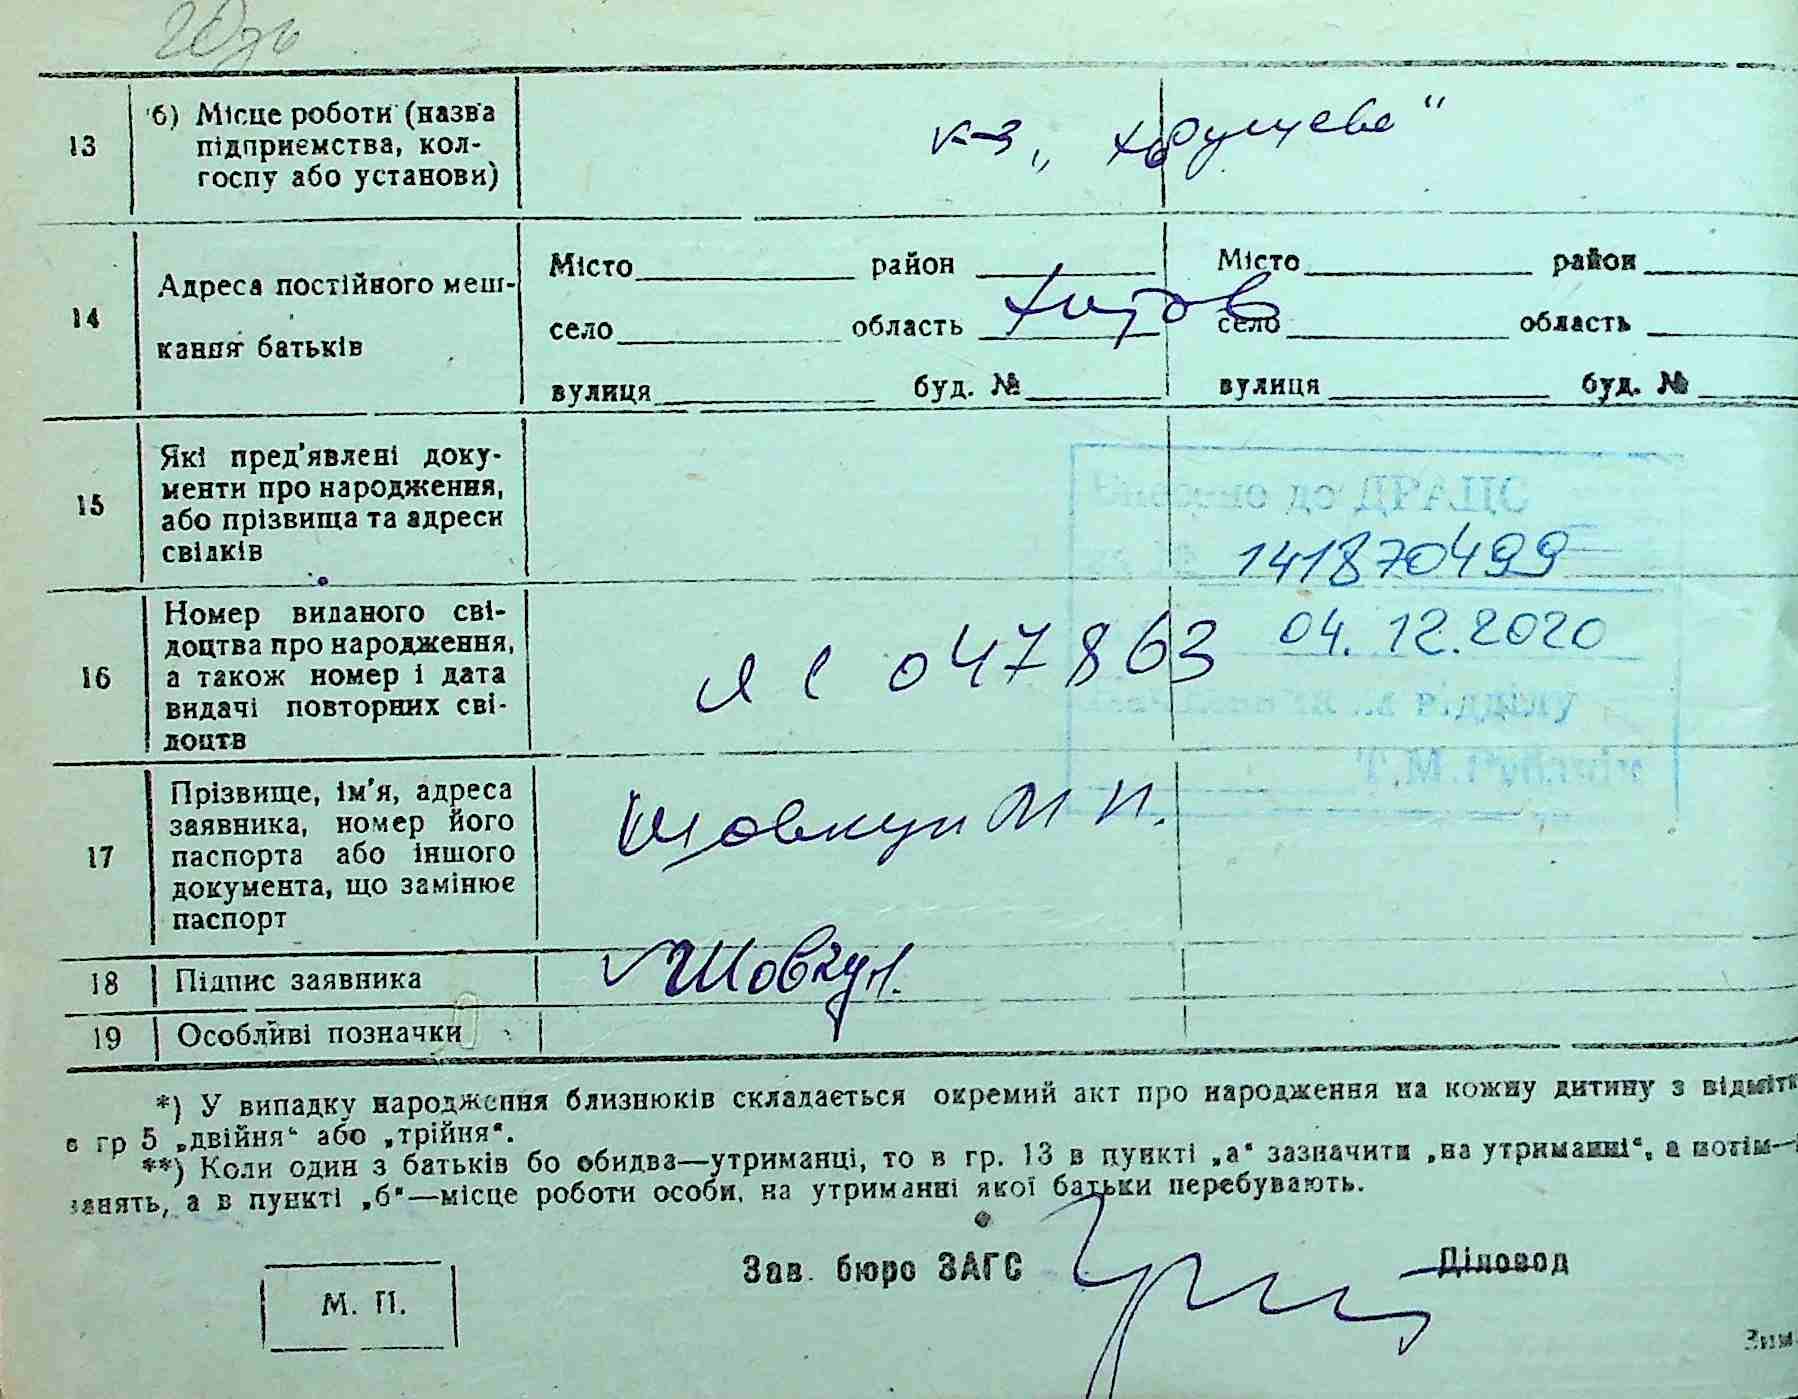 13
б) Місце роботи (назва
підприємства, кол-
госпу або установи)
к-з „Хрущева“
14
Адреса постійного меш-
кання батьків
Місто район
село область
вулиця буд. №
Місто район
село область
вулиця буд. №
Хутов
15
Які пред'явлені доку-
менти про народження,
або прізвища та адреси
свідків
Внесено до ДРАЦС
за № 141870499
04.12.2020
відділу
Т.М.
16
Номер виданого сві-
доцтва про народження,
а також номер і дата
видачі повторних сві-
доцтв
ЯС 047863
17
Прізвище, ім'я, адреса
заявника, номер його
паспорта або іншого
документа, що замінює
паспорт
Шовкун М П.
18 Підпис заявника
Шовкун.
19 Особливі позначки
*) У випадку народження близнюків складається окремий акт про народження на кожну дитину з відмітк
в гр 5 „двійня“ або „трійня“.
**) Коли один з батьків бо обидва—утриманці, то в гр. 13 в пункті „а“ зазначити „на утриманні“, а потім—
занять, а в пункті „б“—місце роботи особи, на утриманні якої батьки перебувають.
Зав. бюро ЗАГС Діловод
М. П.